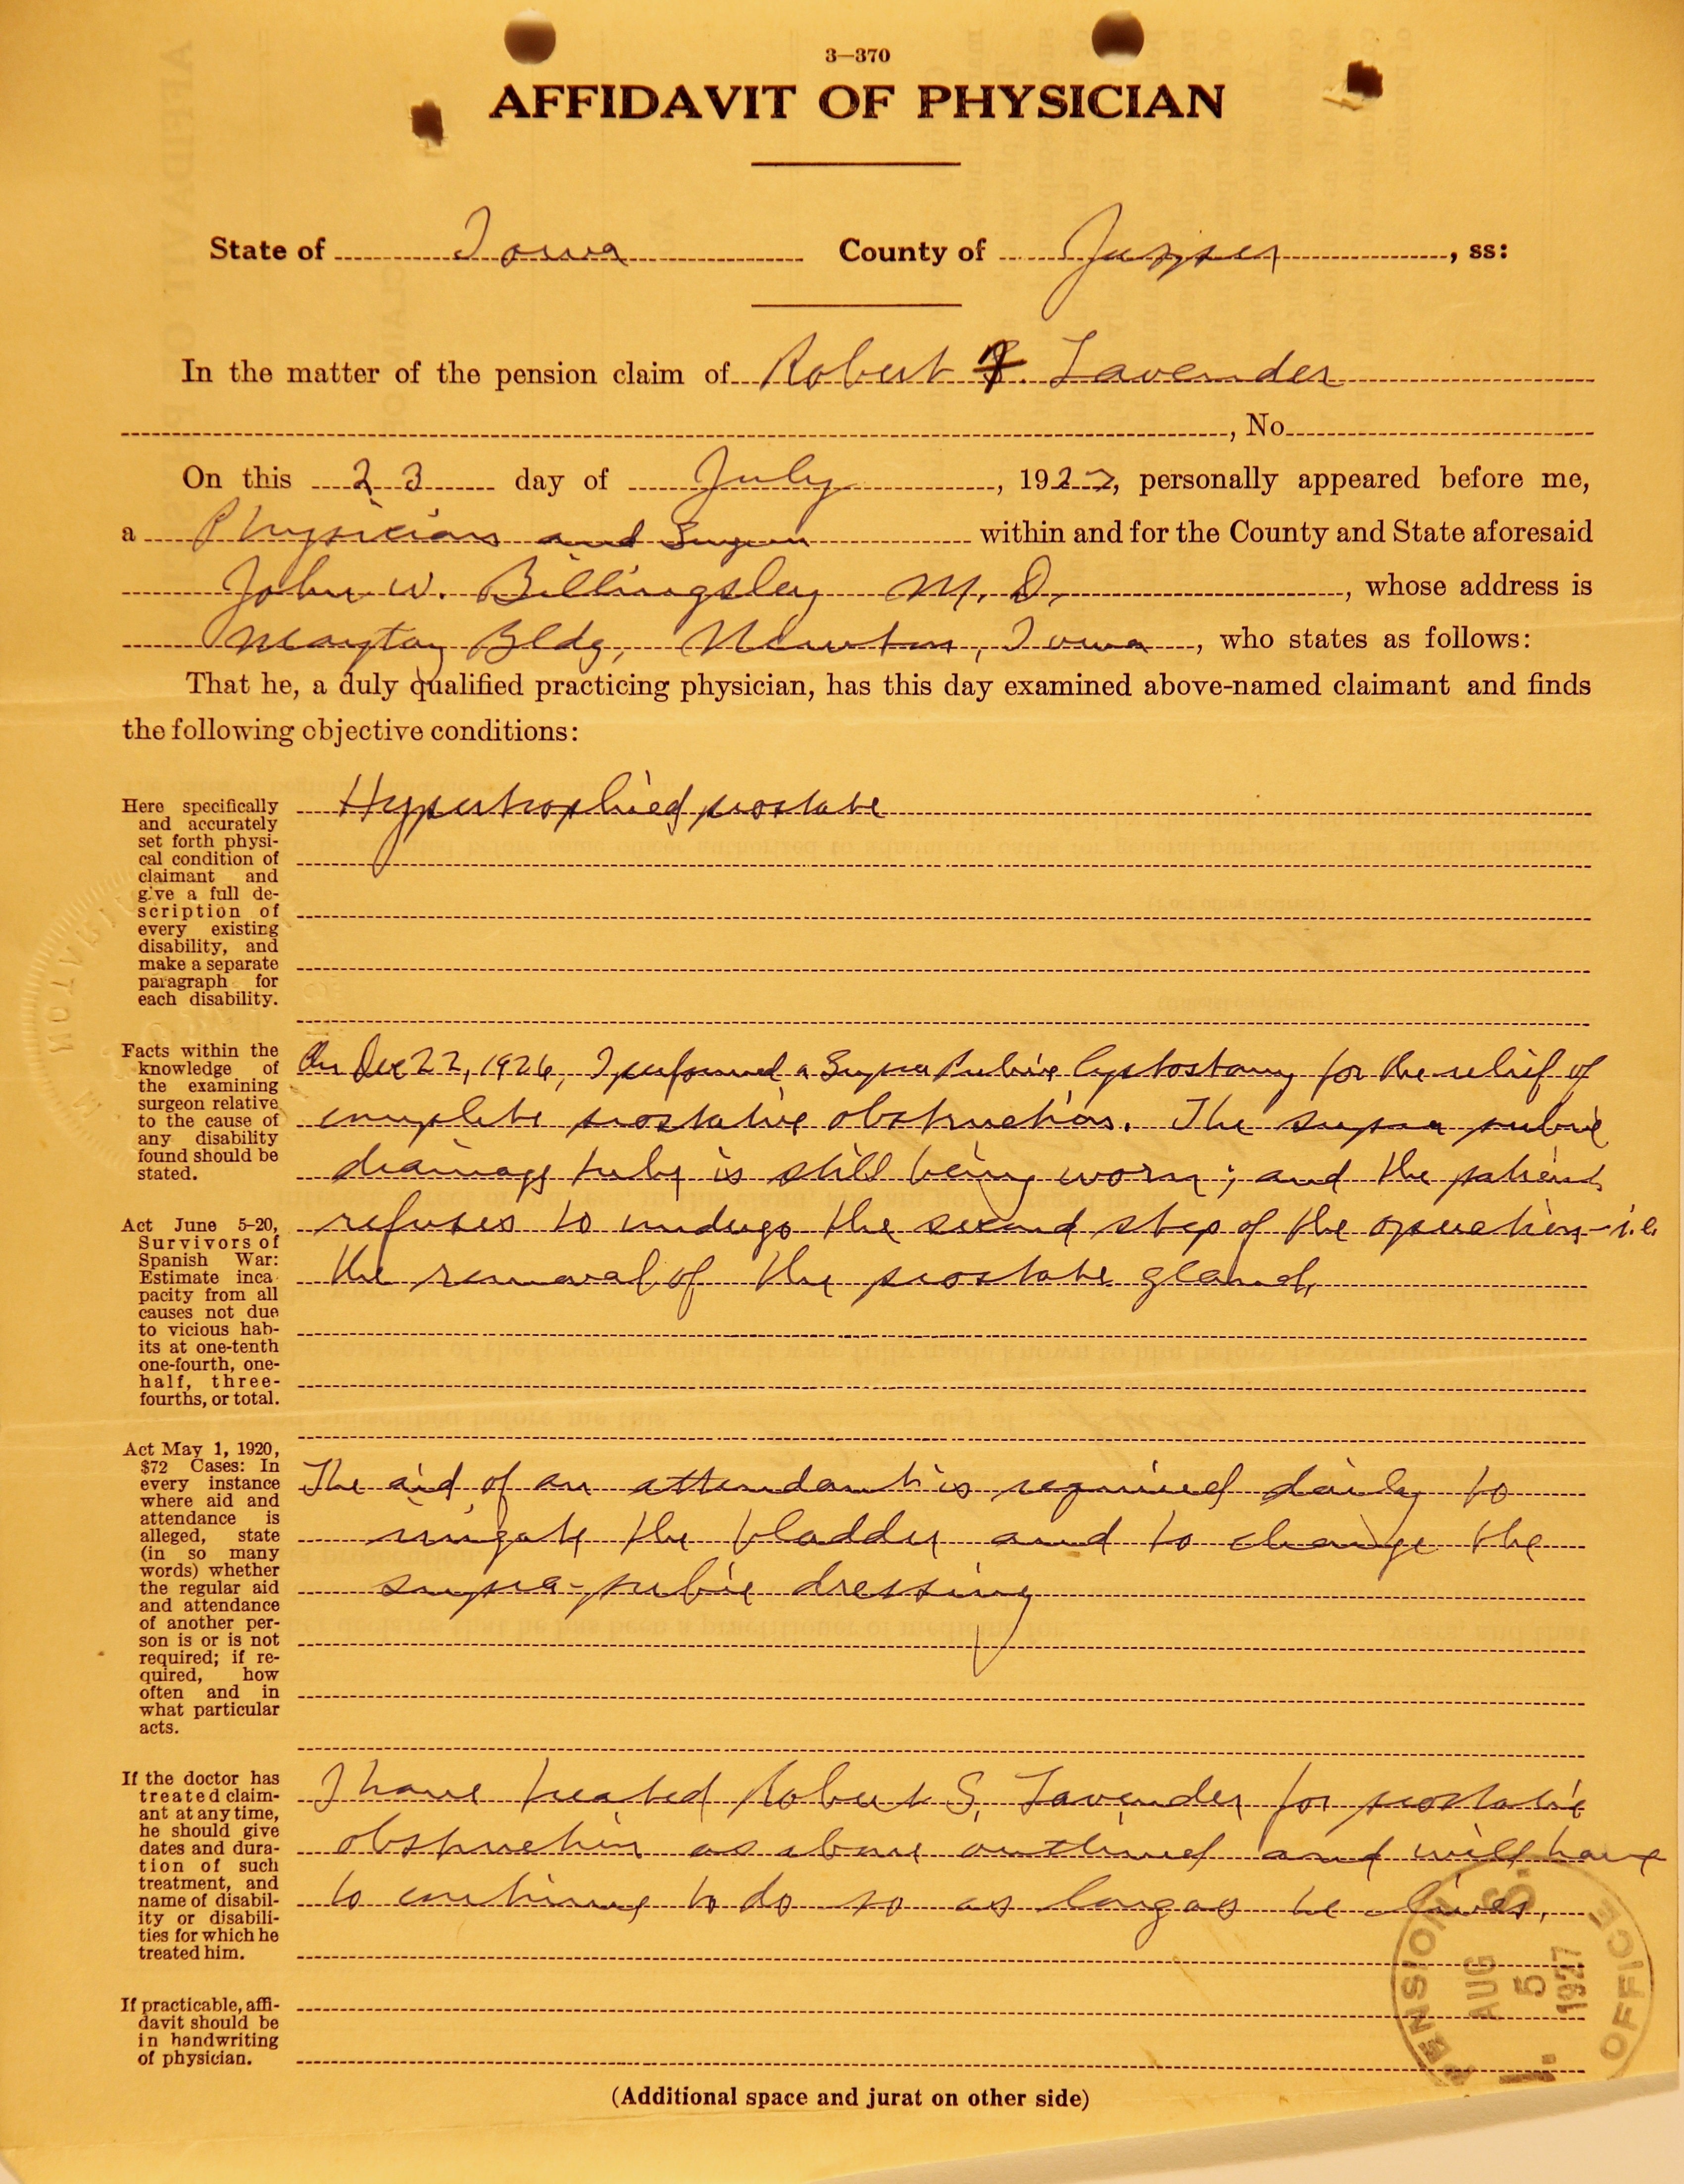 3—370
AFFIDAVIT OF PHYSICIAN
State of Iowa County of Jasper, ss:
In the matter of the pension claim of Robert Lavender
, No.
On this 23 day of July, 1927, personally appeared before me,
a Physician and Surgeon within and for the County and State aforesaid
John W. Billingsley M. D., whose address is
Maytag Bldg, Newton, Iowa, who states as follows:
That he, a duly qualified practicing physician, has this day examined above-named claimant and finds
the following objective conditions:
Here specifically
and accurately
set forth physi-
cal condition of
claimant and
give a full de-
scription of
every existing
disability, and
make a separate
paragraph for
each disability.
Hypertrophied prostate
Facts within the
knowledge of
the examining
surgeon relative
to the cause of
any disability
found should be
stated.
Act June 5-20,
Survivors of
Spanish War:
Estimate inca
pacity from all
causes not due
to vicious hab-
its at one-tenth
one-fourth, one-
half, three-
fourths, or total.
On Dec 22, 1926, I performed a Supra Pubic Cystostomy for the relief of
complete prostatic obstruction. The supra pubic
drainage tube is still being worn; and the patient
refuses to undergo the second step of the operation—i.e.
the removal of the prostate gland.
Act May 1, 1920,
$72 Cases: In
every instance
where aid and
attendance is
alleged, state
(in so many
words) whether
the regular aid
and attendance
of another per-
son is or is not
required; if re-
quired, how
often and in
what particular
acts.
The aid of an attendant is required daily to
irrigate the bladder and to change the
supra-pubic dressing
If the doctor has
treated claim-
ant at any time,
he should give
dates and dura-
tion of such
treatment, and
name of disabil-
ity or disabili-
ties for which he
treated him.
I have treated Robert S. Lavender for prostatic
obstruction as above outlined and will have
to continue to do so as long as he lives.
If practicable, affi-
davit should be
in handwriting
of physician.
PENSION OFFICE
U. S.
AUG
5
1927
(Additional space and jurat on other side)